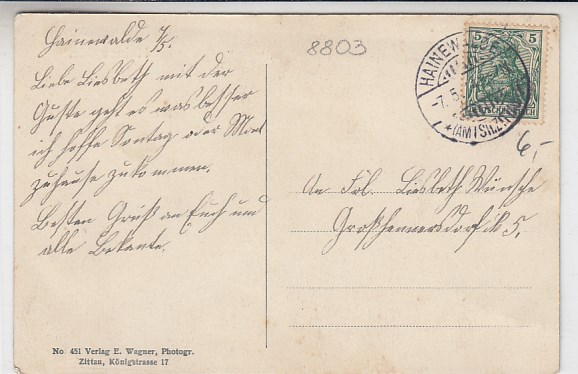 Hainewalde 7/5.
Liebe Liesbeth mit der
Guste geht es was besser
ich hoffe Sontag oder Mont
zuhause zukommen.
Besten Gruß an Euch und
alle Bekante.
8803
5 5
HAINEWALDE
-7.5
*(AMTSH.Z
6,-
An Frl. Liesbeth Wünsche
Großhennersdorf № 5.
No 451 Verlag E. Wagner, Photogr.
Zittau, Königstrasse 17